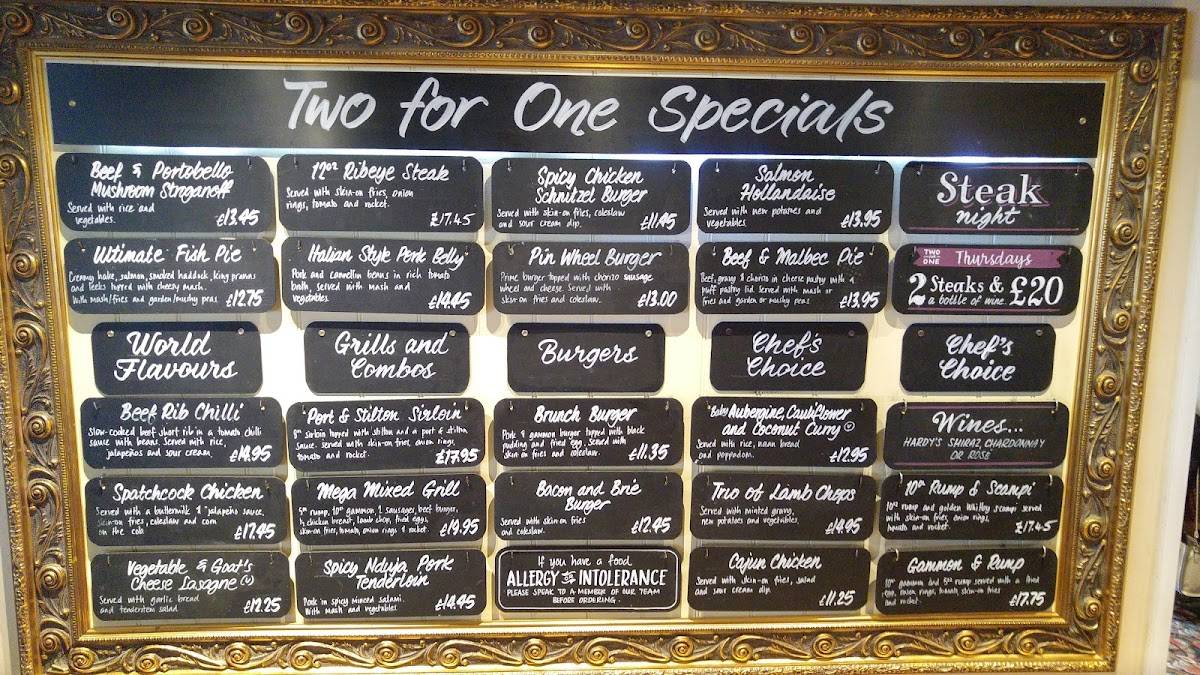 Two for One Specials
Beef & Portobello
Mushroom Stroganoff
Served with rice and
vegetables.
£13.45
12oz Ribeye Steak
Served with skin-on fries, onion
rings, tomato and rocket.
£17.45
Spicy Chicken
Schnitzel Burger
Served with skin-on fries, coleslaw
and sour cream dip.
£11.45
Salmon
Hollandaise
Served with new potatoes and
vegetables.
£13.95
Steak
night
Ultimate Fish Pie
Creamy hake, salmon, smoked haddock, king prawns
and leeks topped with cheesy mash.
With mash/fries and garden/mushy peas
£12.75
Italian Style Pork Belly
Pork and cannellini beans in rich tomato
broth, served with mash and
vegetables.
£14.45
Pin Wheel Burger
Prime burger topped with chorizo sausage
wheel and cheese. Served with
skin-on fries and coleslaw.
£13.00
Beef & Malbec Pie
Beef, gravy & chorizo in cheese pastry with a
puff pastry lid served with mash or
fries and garden or mushy peas
£13.95
TWO for ONE
Thursdays
2 Steaks &
a bottle of wine
£20
World
Flavours
Grills and
Combos
Burgers
Chef's
Choice
Chef's
Choice
Beef Rib Chilli
Slow-cooked beef short rib in a tomato chilli
sauce with beans. Served with rice,
jalapeños and sour cream.
£14.95
Port & Stilton Sirloin
8oz sirloin topped with stilton and a port & stilton
sauce. served with skin-on fries, onion rings,
tomato and rocket.
£17.95
Brunch Burger
Pork & gammon burger topped with black
pudding and fried egg. Served with
skin on fries and coleslaw.
£11.35
Baby Aubergine, Cauliflower
and Coconut Curry (v)
Served with rice, naan bread
and poppadom.
£12.95
Wines...
HARDY'S SHIRAZ, CHARDONNAY
OR ROSÉ
Spatchcock Chicken
Served with a buttermilk & jalapeño sauce,
skin-on fries, coleslaw and corn
on the cob
£17.45
Mega Mixed Grill
5oz rump, 10oz gammon, 2 sausages, beef burger,
½ chicken breast, lamb chop, fried eggs,
skin-on fries, tomato, onion rings & rocket.
£19.95
Bacon and Brie
Burger
Served with skin-on fries
and coleslaw.
£12.45
Trio of Lamb Chops
Served with minted gravy,
new potatoes and vegetables.
£14.95
10oz Rump & Scampi
10oz rump and golden Whitby scampi served
with skin-on fries, onion rings,
tomato and rocket.
£17.45
Vegetable & Goat's
Cheese Lasagne (v)
Served with garlic bread
and tenderstem salad
£12.25
Spicy Nduja Pork
Tenderloin
Pork in spicy minced salami.
With mash and vegetables
£14.45
If you have a food
ALLERGY or INTOLERANCE
PLEASE SPEAK TO A MEMBER OF OUR TEAM
BEFORE ORDERING.
Cajun Chicken
Served with skin-on fries, salad
and sour cream dip.
£11.25
Gammon & Rump
10oz gammon and 5oz rump served with a fried
egg, onion rings, tomato, skin-on fries
and rocket.
£17.75